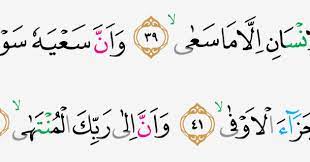 نْسَانِ اِلَّا مَا سَعٰى ۙ ٣٩ وَاَنَّ سَعْيَهٗ سَوْ
جَزَاۤءَ الْاَوْفٰى ۙ ٤١ وَاَنَّ اِلٰى رَبِّكَ الْمُنْتَهٰى ۙ